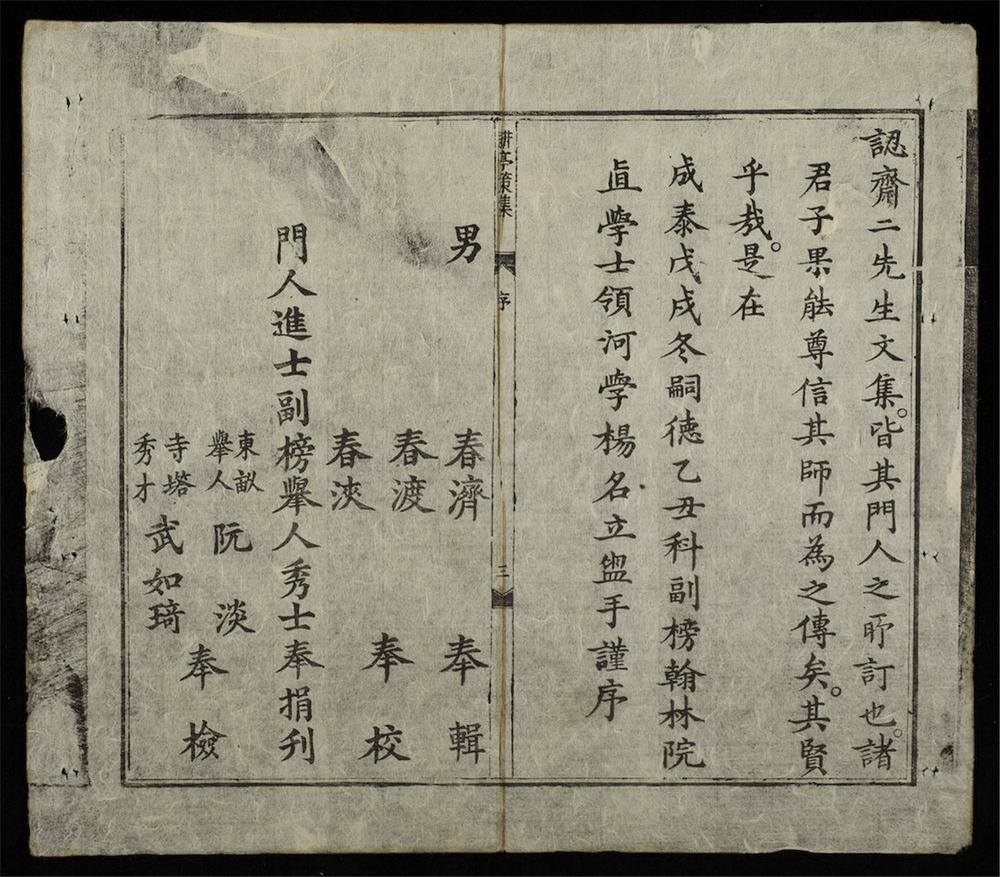 認齋二先生文集。皆其門人之所訂也。諸
君子果能尊信其師而為之傳矣。其賢
乎哉。是在
成泰戊戌冬嗣德乙丑科副榜翰林院
直學士領河學楊名立盥手謹序
耕亭策集
序
三
男
春濟
奉輯
春渡
春浹
奉校
門人進士副榜舉人秀士奉捐刋
東畝
舉人
阮淡
寺塔
秀才
武如琦
奉檢